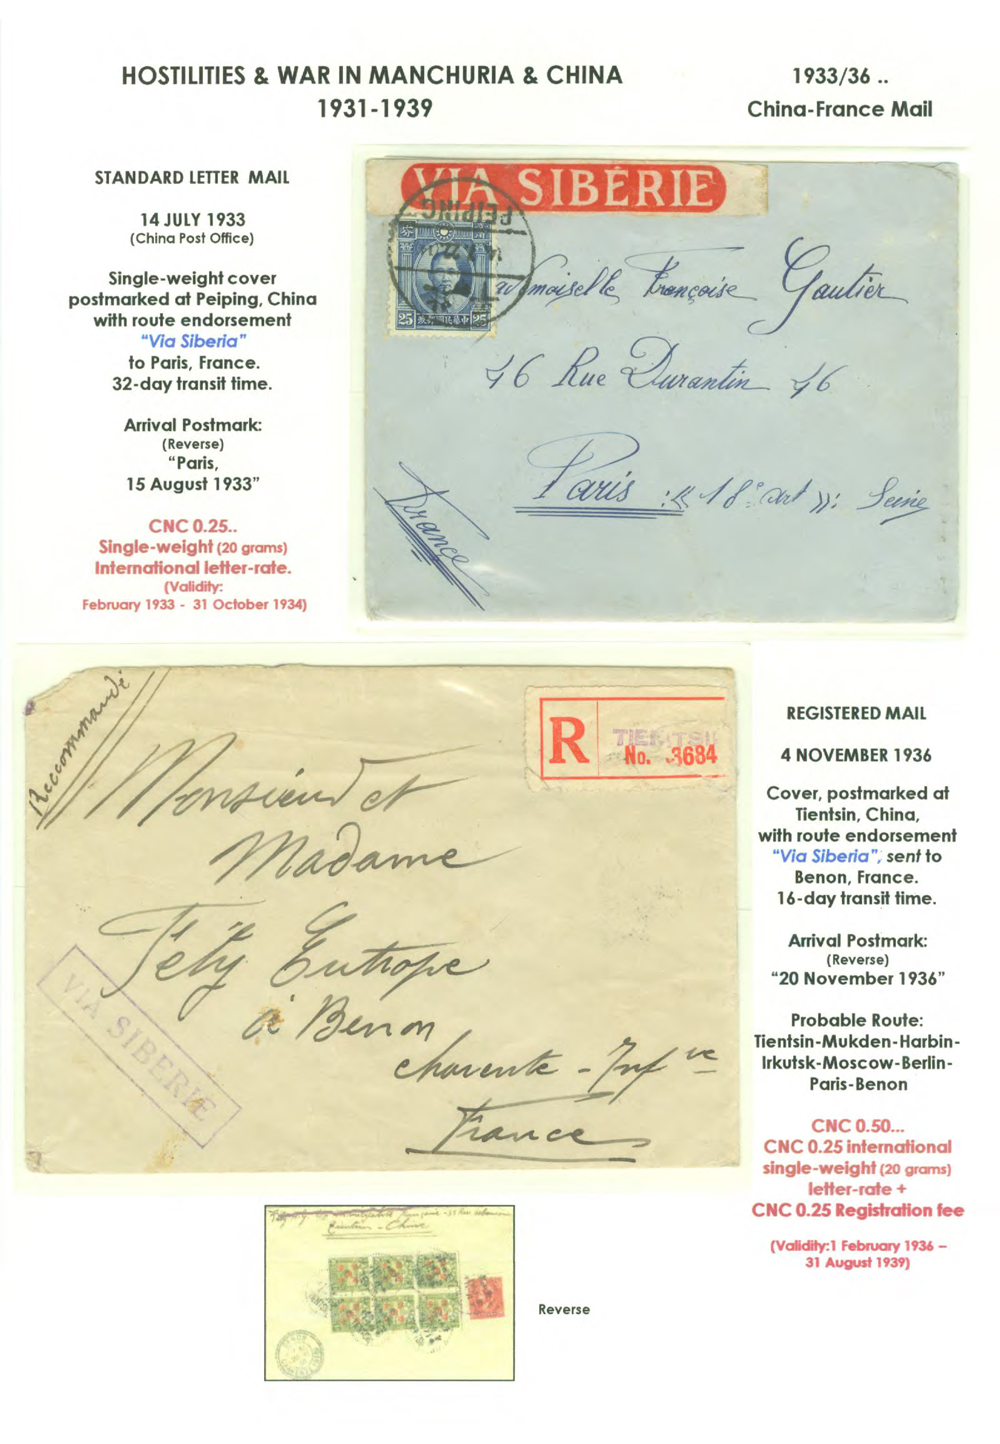 HOSTILITIES & WAR IN MANCHURIA & CHINA
1931-1939
1933/36 ..
China-France Mail
STANDARD LETTER MAIL
14 JULY 1933
(China Post Office)
Single-weight cover
postmarked at Peiping, China
with route endorsement
"Via Siberia"
to Paris, France.
32-day transit time.
Arrival Postmark:
(Reverse)
"Paris,
15 August 1933"
CNC 0.25..
Single-weight (20 grams)
International letter-rate.
(Validity:
February 1933 - 31 October 1934)
VIA SIBÉRIE
PEIPING
25 25
Mademoiselle Françoise Gautier
46 Rue Durantin 46
Paris :« 18e art »: Seine
France
Reccommandé
R
TIENTSIN
No. 3684
Monsieur et
Madame
Fély Eutrope
à Benon
Charente - Infre
France
VIA SIBERIE
REGISTERED MAIL
4 NOVEMBER 1936
Cover, postmarked at
Tientsin, China,
with route endorsement
"Via Siberia", sent to
Benon, France.
16-day transit time.
Arrival Postmark:
(Reverse)
"20 November 1936"
Probable Route:
Tientsin-Mukden-Harbin-
Irkutsk-Moscow-Berlin-
Paris-Benon
CNC 0.50...
CNC 0.25 international
single-weight (20 grams)
letter-rate +
CNC 0.25 Registration fee
(Validity:1 February 1936 –
31 August 1939)
Tientsin - Chine
Reverse